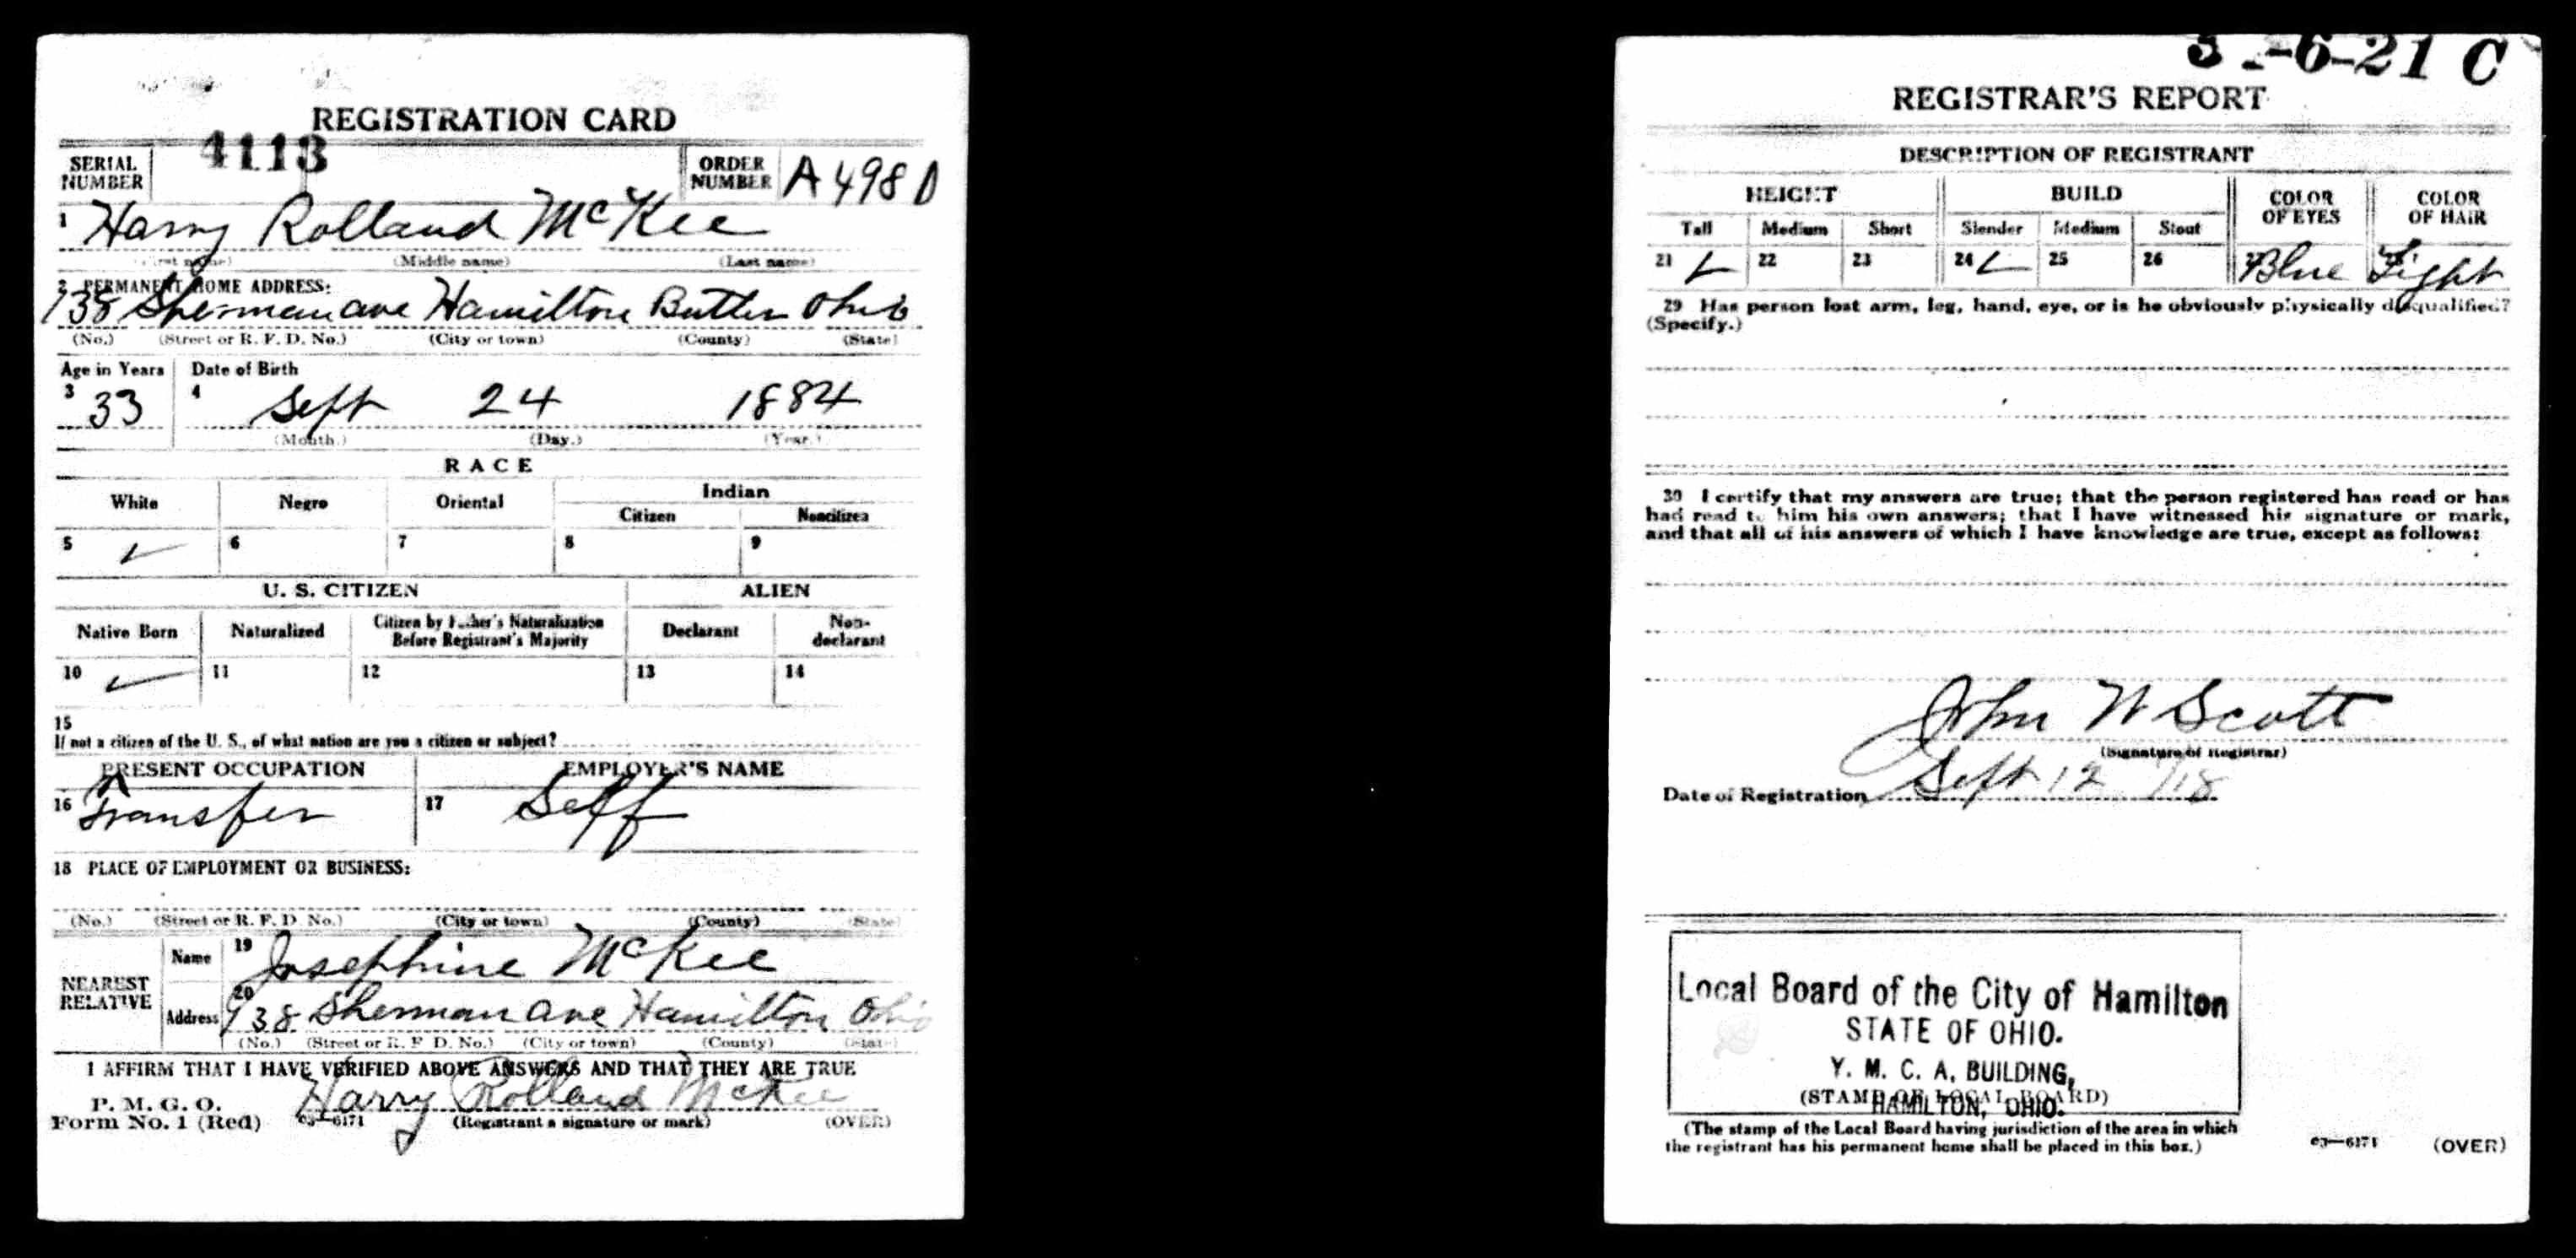 REGISTRATION CARD
SERIAL NUMBER 4113 ORDER NUMBER A 498 D
1 Harry Rolland McKee
(First name) (Middle name) (Last name)
2 PERMANENT HOME ADDRESS:
738 Sherman ave Hamilton Butler Ohio
(No.) (Street or R. F. D. No.) (City or town) (County) (State)
Age in Years Date of Birth
3 33 4 Sept 24 1884
(Month.) (Day.) (Year.)
RACE
White Negro Oriental Indian
Citizen Noncitizen
5 ✓ 6 7 8 9
U. S. CITIZEN ALIEN
Native Born Naturalized Citizen by Father's Naturalization Before Registrant's Majority Declarant Non-declarant
10 ✓ 11 12 13 14
15
If not a citizen of the U. S., of what nation are you a citizen or subject?
PRESENT OCCUPATION EMPLOYER'S NAME
16 Transfer 17 Self
18 PLACE OF EMPLOYMENT OR BUSINESS:
(No.) (Street or R. F. D. No.) (City or town) (County) (State)
NEAREST RELATIVE Name 19 Josephine McKee
Address 20 738 Sherman ave Hamilton Ohio
(No.) (Street or R. F. D. No.) (City or town) (County) (State)
I AFFIRM THAT I HAVE VERIFIED ABOVE ANSWERS AND THAT THEY ARE TRUE
P. M. G. O.
Form No. 1 (Red) 03—6171 Harry Rolland McKee
(Registrant's signature or mark) (OVER)
-6-21 C
REGISTRAR'S REPORT
DESCRIPTION OF REGISTRANT
HEIGHT BUILD COLOR OF EYES COLOR OF HAIR
Tall Medium Short Slender Medium Stout
21 ✓ 22 23 24 ✓ 25 26 27 Blue Light
29 Has person lost arm, leg, hand, eye, or is he obviously physically disqualified?
(Specify.)
30 I certify that my answers are true; that the person registered has read or has
had read to him his own answers; that I have witnessed his signature or mark,
and that all of his answers of which I have knowledge are true, except as follows:
John W Scott
(Signature of Registrar)
Date of Registration Sept 12 /18
Local Board of the City of Hamilton
STATE OF OHIO.
Y. M. C. A. BUILDING,
(STAMP OF LOCAL BOARD)
HAMILTON, OHIO.
(The stamp of the Local Board having jurisdiction of the area in which
the registrant has his permanent home shall be placed in this box.)
03—6171 (OVER)